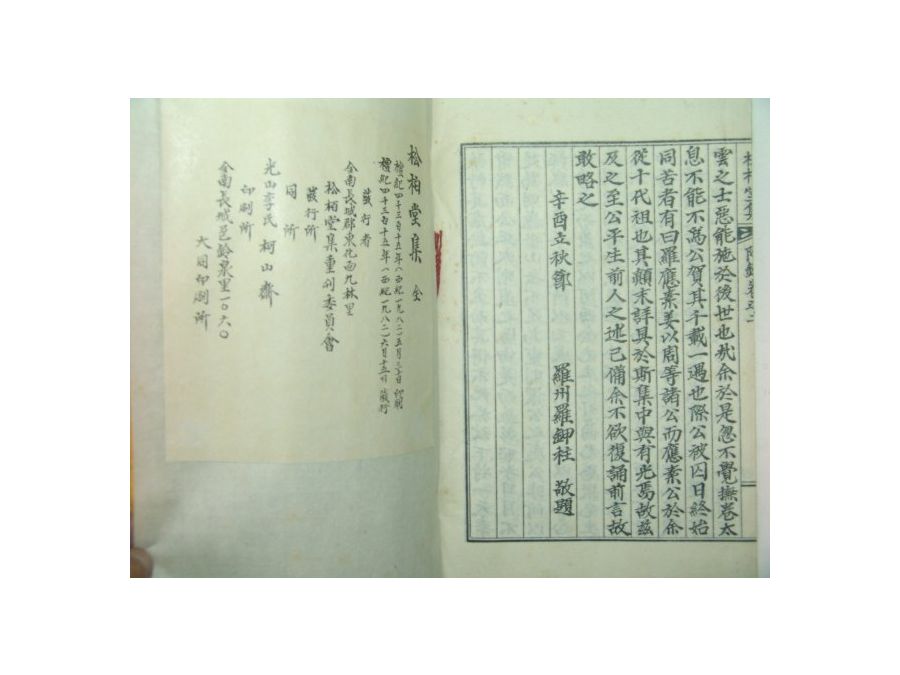 雲之士惡能施於後世也哉余於是忽不覺撫卷太
息不能不爲公賀其千載一遇也際公被囚日終始
同苦者有曰羅應素姜以周等諸公而應素公於余
從十代祖也其顚末詳具於斯集中與有光焉故茲
及之至公平生前人之述已備余不欲復誦前言故
敢略之
辛酉立秋節 羅州羅鉀柱 敬題
松柏堂集 全
檀紀四千三百十五年(西紀一九八二)五月三十日 印刷
檀紀四千三百十五年(西紀一九八二)六月十五日 發行
發行者
全南長城郡東化面九林里
松柏堂集重刊委員會
發行所
同所
光山李氏 柯山齋
印刷所
全南長城邑鈴泉里一〇六〇
大同印刷所